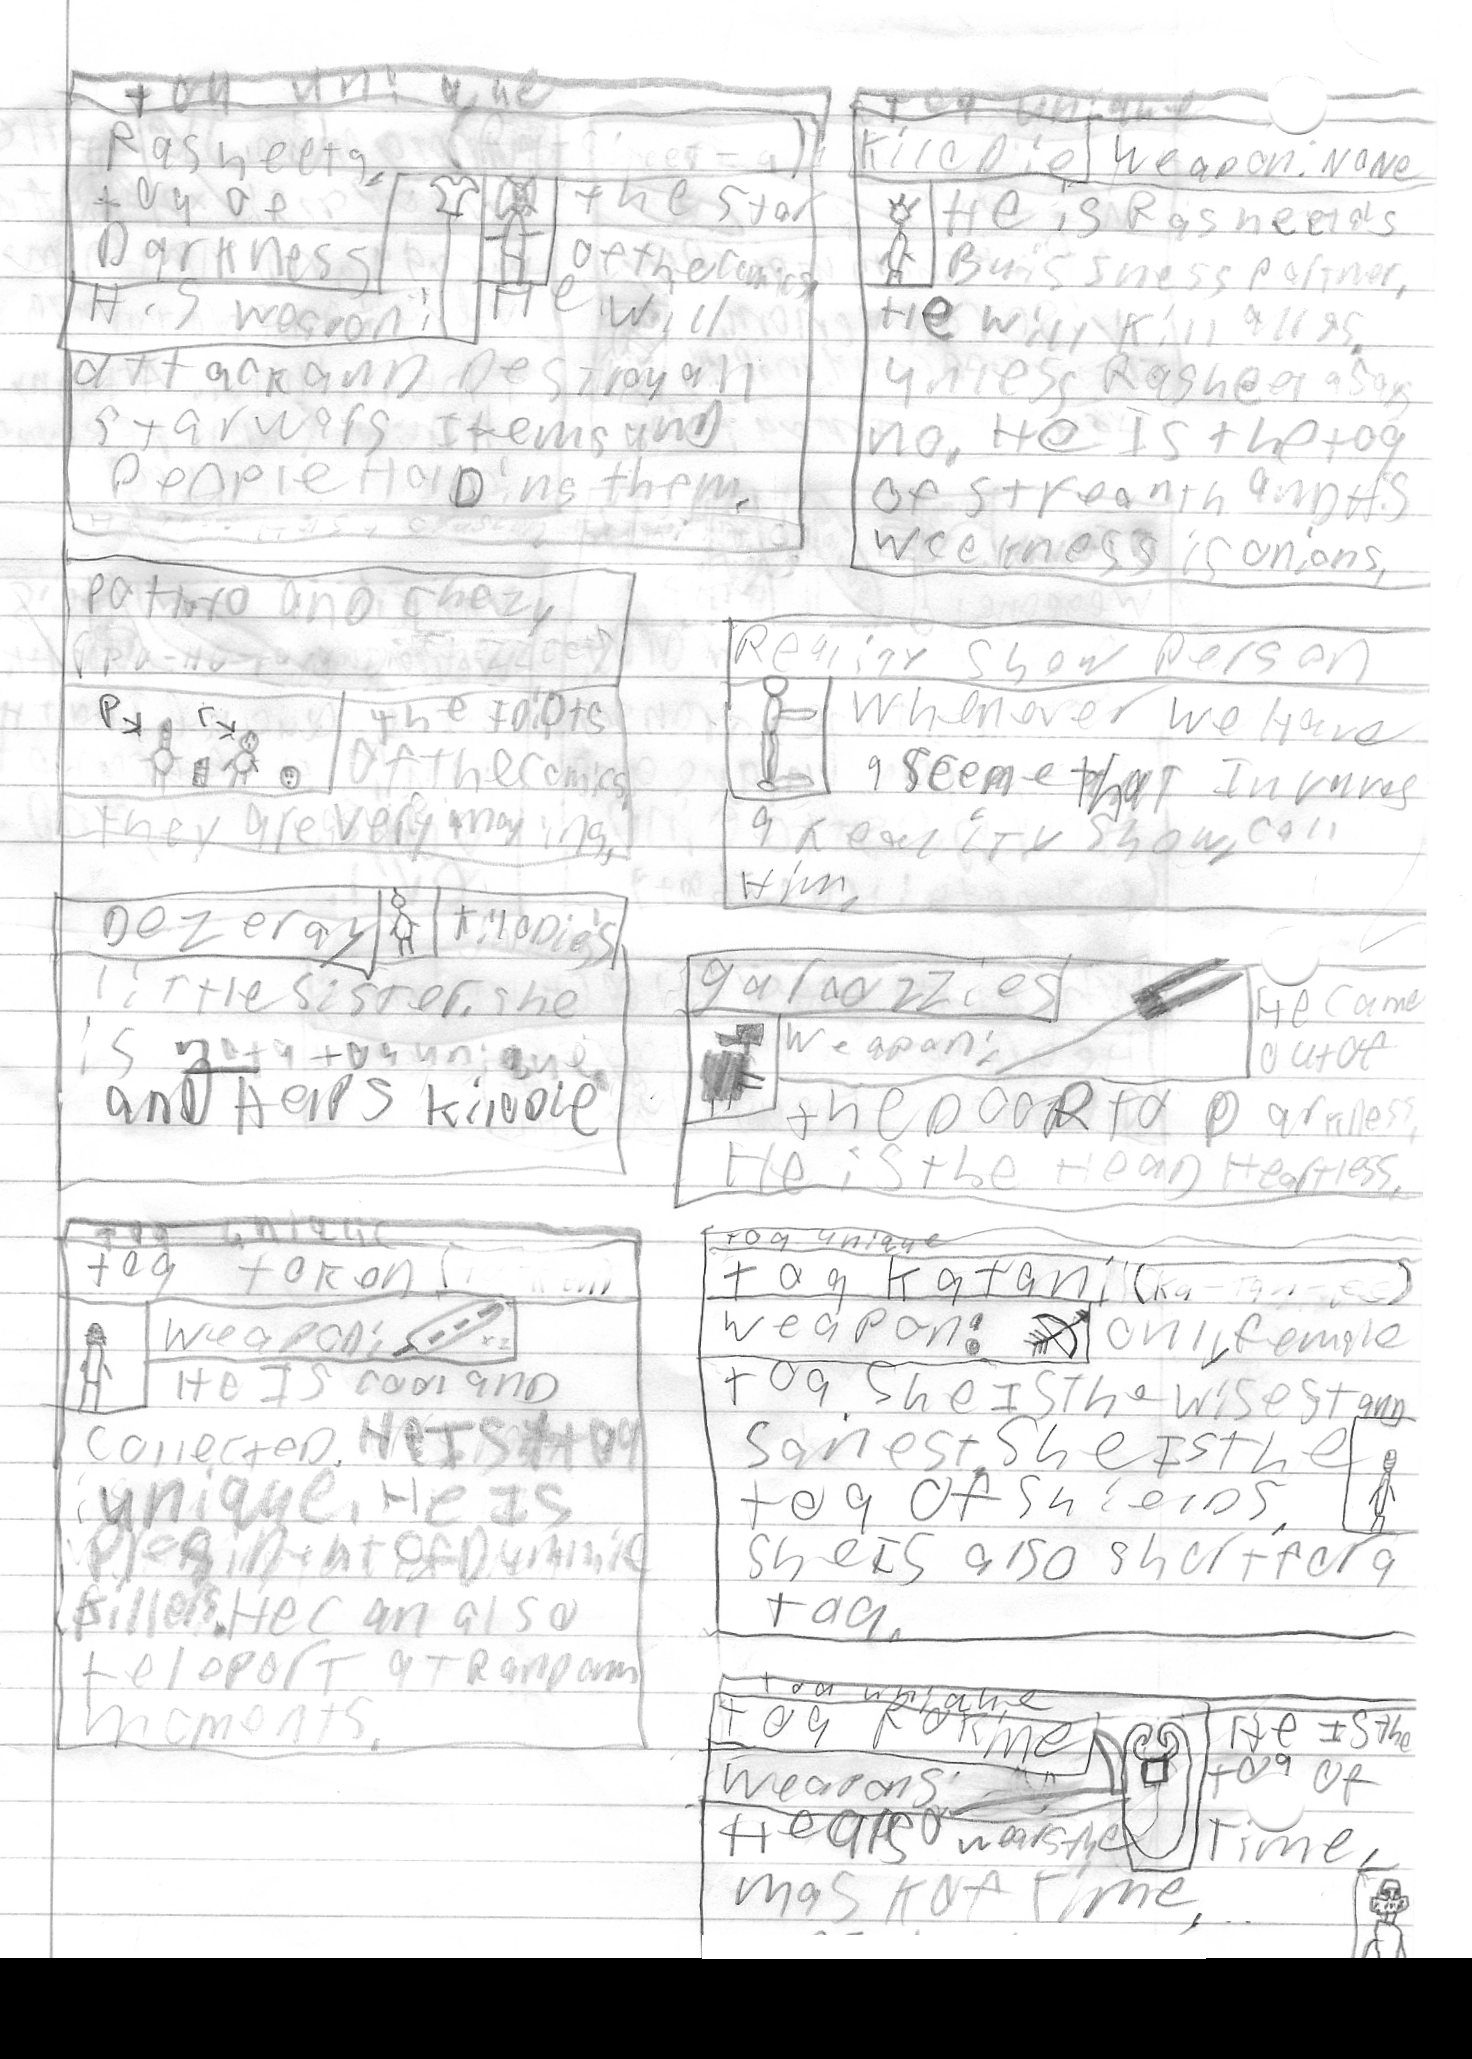 toa unique
Rasheeta,
toa of
Darkness
the star
of the comics,
His weapon:
He will
attack and Destroy all
starwars Items and
People HolDing them.
toa unique
KiloDie Weapon: NONE
He is Rasheeta's
Buissness partner,
He will Kill all as,
unless Rasheeta says
no, He Is the toa
of streanth and His
weekness is onions,
and chezy
the IDiots
of the comics
they are very
Reality Show Person
Whenever we Have
a seeme that Invovles
a Reality Show, call
Him,
Dezeray KiloDie's
little sister. she
is not a toa unique.
and Helps KiloDie
Weapon:
He came
out of
the DooR to Darkness,
He is the HeaD Heartless,
toa unique
toa token
Weapon: x2
He IS cool and
collecteD. He IS a toa
unique. He Is
PresiDent of Dummie
killers. He can also
teleport at RanDom
moments.
toa unique
toa Katani (Ka-tan-ee)
weapon: only female
toa. She Is the wisest and
saniest. She Is the
toa of ShielDs.
She IS also short for a
toa.
toa unique
toa Rokme
He IS the
Weapons:
toa of
He also wears the
Time,
mas K of time,